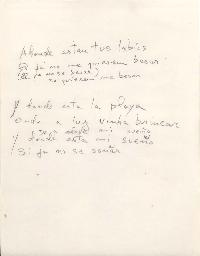 Adonde estan tus labios
Si ya no me quieren besar
(Si ya no se besar)
no quieren me besar
Y donde esta la playa
Onde a luz vinha brincar
esta mi sueño
Y donde esta mi sueño
Si ya no se soñar